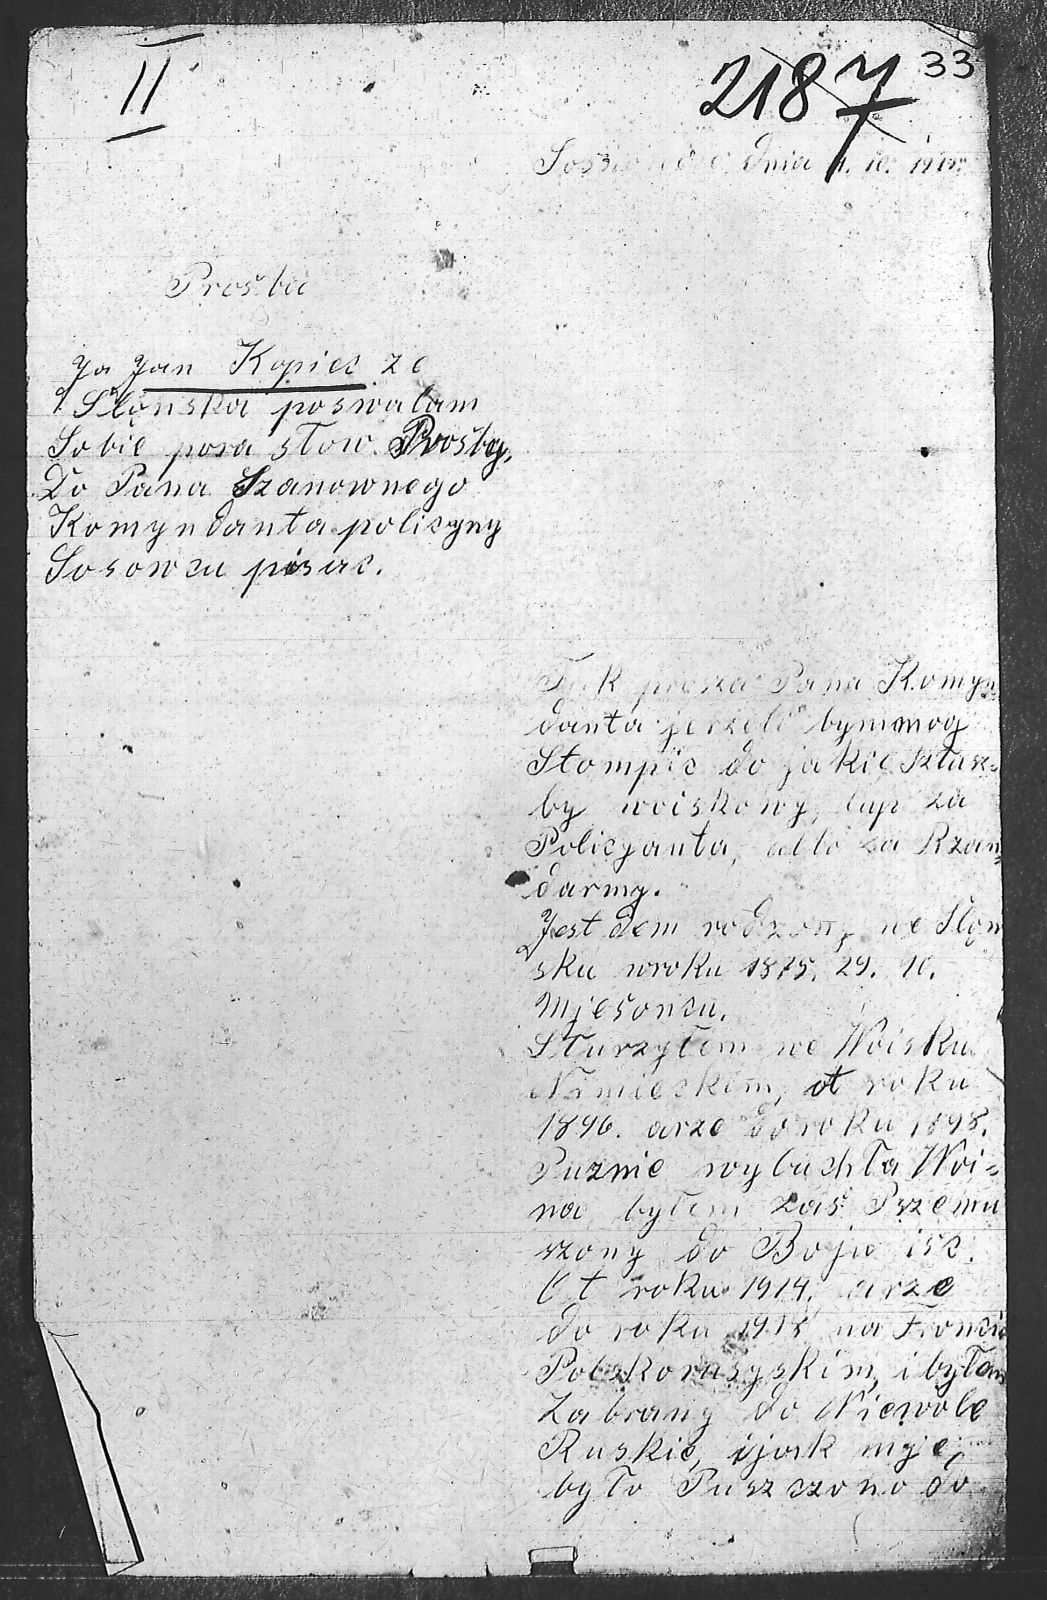 II
2187
33
dnia 1. 10. 19
Prośba
Ja Jan Kopiec ze
Slonska poswalam
Sobie para słow. Prośby,
Do Pana Szanownego
Komyndanta policyny
Sosowcu pisac.
Tak prosza Pana Komyn
danta jerzeli bymmog
Stompic do jakie Szlusz-
by woiskowy, lup za
Policyanta, albo za Rzan-
darmy.
Jest dem rodzony we Slon
sku wroku 1875. 29. 10.
Mjesoncu.
Sturzyłem we Woisku
Nimieckim, ot roku
1896. arze do roku 1898.
Puznie wybuchła Woi-
na byłem zaś Przemu
szony do Boju isc.
Ot roku 1914. arze
do roku 1915 na Froncie
Polskorusyskim, i byłem
Zabrany do Niewole
Ruskie, i jak mje
było Puszczono do